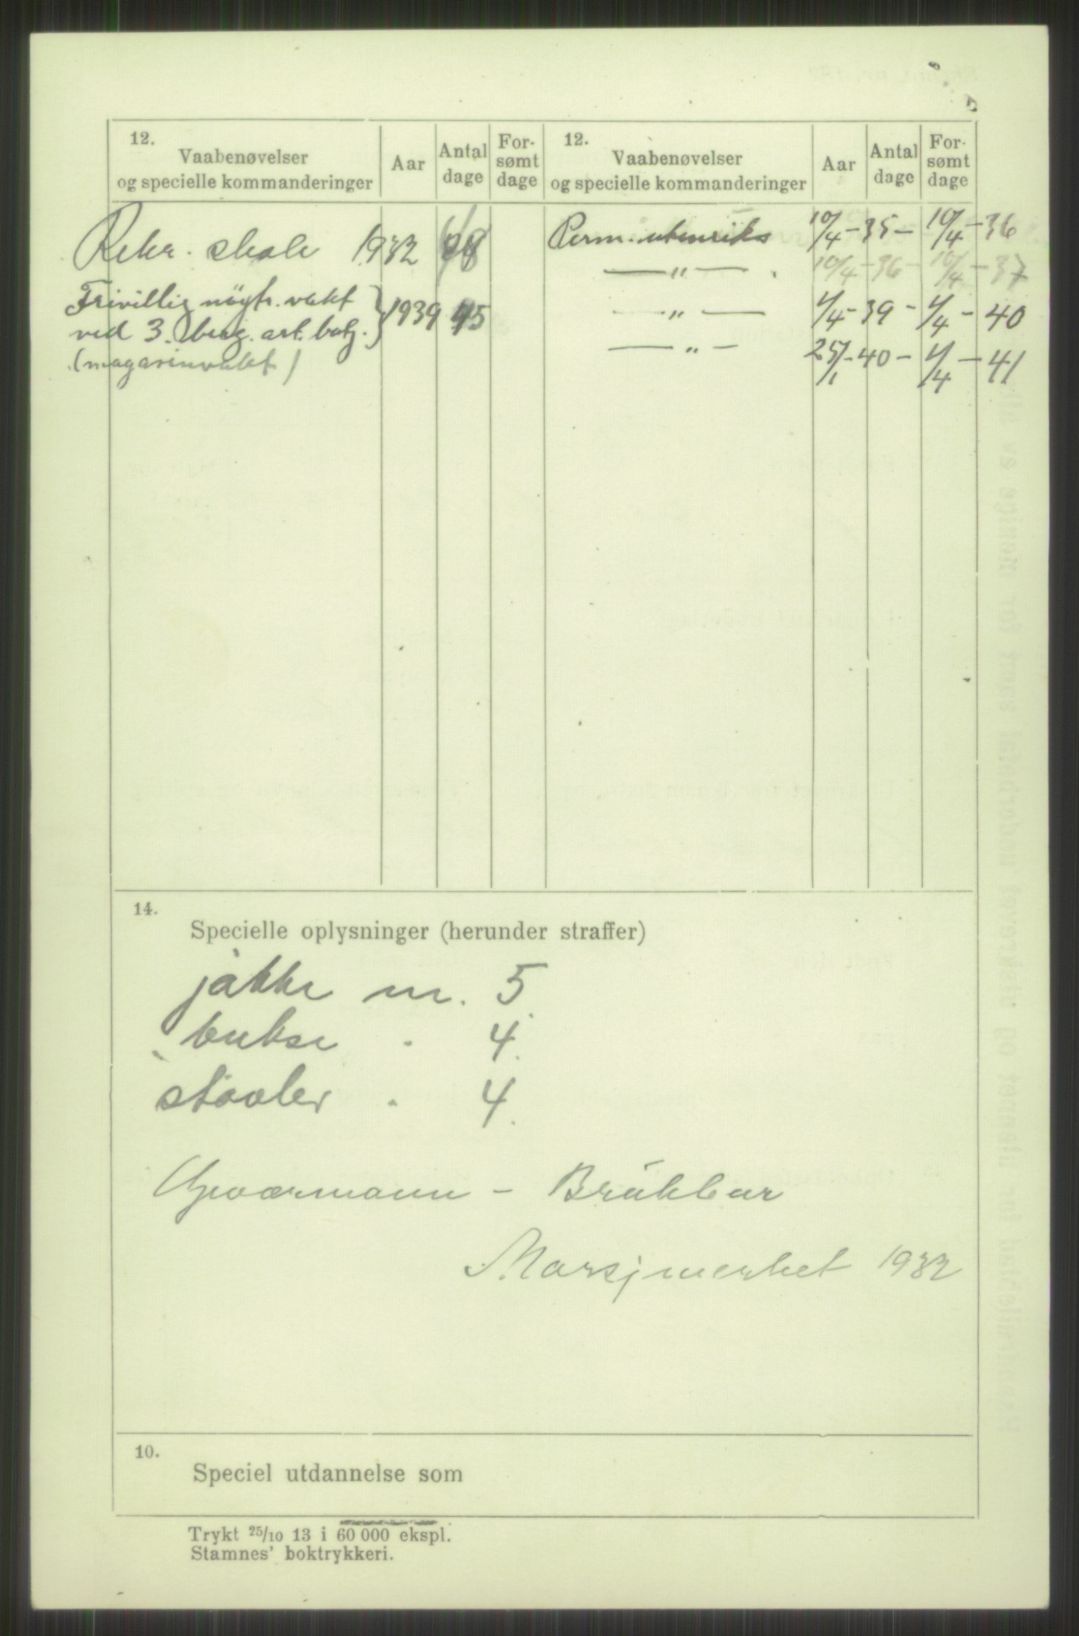 12.
Vaabenøvelser
og specielle kommanderinger
Aar
Antal
dage
For-
sømt
dage
12.
Vaabenøvelser
og specielle kommanderinger
Aar
Antal
dage
For-
sømt
dage
Rekr. skole 1932
Frivillig nøytr. vakt
ved 3. berg. art. batj. } 1939 45
(magasinvakt)
Perm. utenriks 10/4-35 - 10/4-36
—„— 10/4-36 - 10/4-37
—„— 1/4-39 - 1/4-40
—„— 25/1-40 - 1/4-41
14.
Specielle oplysninger (herunder straffer)
jakke nr. 5
bukse " 4
støvler " 4
Geværmann - Brukbar
Marsjmerket 1932
10.
Speciel utdannelse som
Trykt 25/10 13 i 60 000 ekspl.
Stamnes' boktrykkeri.